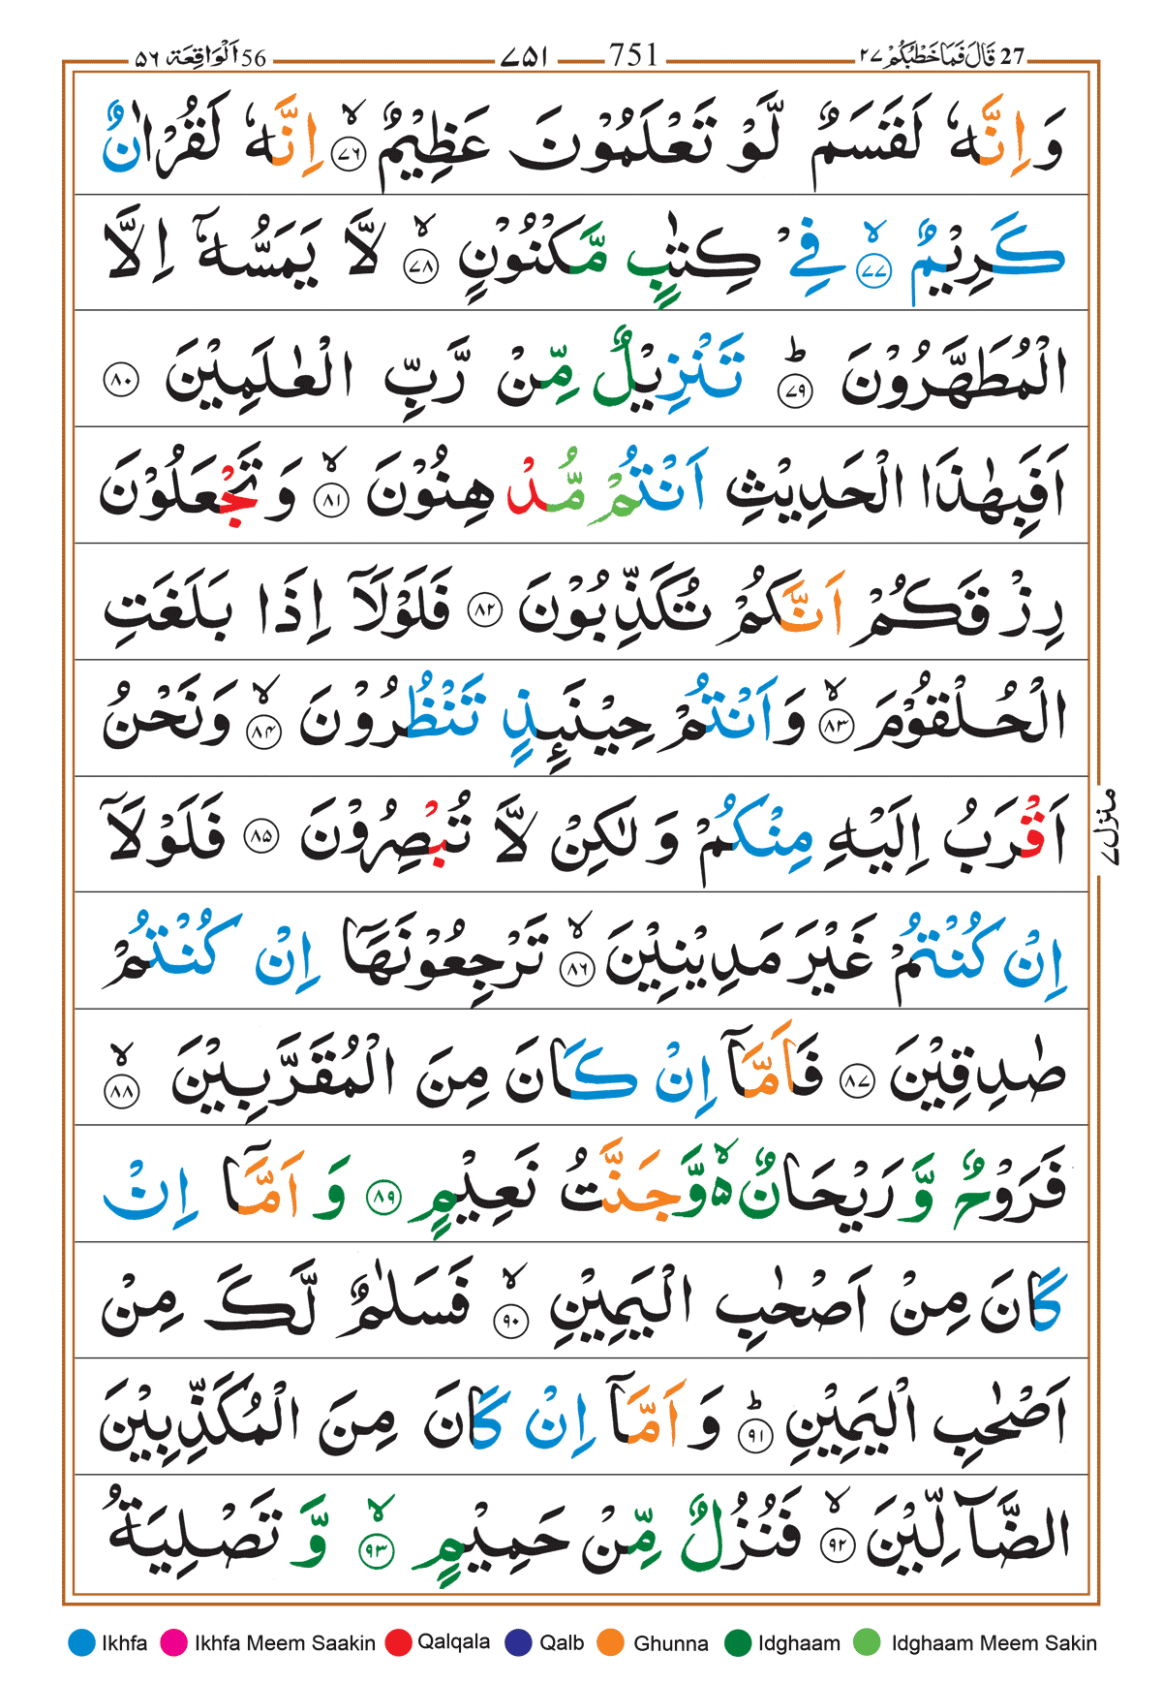 27 قَالَ فَمَا خَطْبُكُمْ ٢٧ 751 ٧٥١ 56 اَلْوَاقِعَة ٥٦
وَاِنَّهٗ لَقَسَمٌ لَّوْ تَعْلَمُوْنَ عَظِيْمٌ ۙ‏﴿۷۶﴾ اِنَّهٗ لَقُرْاٰنٌ
كَرِيْمٌ ۙ‏﴿۷۷﴾ فِىْ كِتٰبٍ مَّكْنُوْنٍ ۙ‏﴿۷۸﴾ لَّا يَمَسُّهٗۤ اِلَّا
الْمُطَهَّرُوْنَ ؕ‏﴿۷۹﴾ تَنْزِيْلٌ مِّنْ رَّبِّ الْعٰلَمِيْنَ ‏﴿۸۰﴾
اَفَبِهٰذَا الْحَدِيْثِ اَنْتُمْ مُّدْهِنُوْنَ ۙ‏﴿۸۱﴾ وَ تَجْعَلُوْنَ
رِزْقَكُمْ اَنَّكُمْ تُكَذِّبُوْنَ ‏﴿۸۲﴾ فَلَوْلَاۤ اِذَا بَلَغَتِ
الْحُلْقُوْمَ ۙ‏﴿۸۳﴾ وَاَنْتُمْ حِيْنَٮِٕذٍ تَنْظُرُوْنَ ۙ‏﴿۸۴﴾ وَنَحْنُ
اَقْرَبُ اِلَيْهِ مِنْكُمْ وَلٰكِنْ لَّا تُبْصِرُوْنَ ‏﴿۸۵﴾ فَلَوْلَاۤ
اِنْ كُنْتُمْ غَيْرَ مَدِيْنِيْنَ ۙ‏﴿۸۶﴾ تَرْجِعُوْنَهَاۤ اِنْ كُنْتُمْ
صٰدِقِيْنَ ‏﴿۸۷﴾ فَاَمَّاۤ اِنْ كَانَ مِنَ الْمُقَرَّبِيْنَ ۙ‏﴿۸۸﴾
فَرَوْحٌ وَّ رَيْحَانٌ ۙ۵ وَّجَنَّتُ نَعِيْمٍ ‏﴿۸۹﴾ وَ اَمَّاۤ اِنْ
كَانَ مِنْ اَصْحٰبِ الْيَمِيْنِ ۙ‏﴿۹۰﴾ فَسَلٰمٌ لَّكَ مِنْ
اَصْحٰبِ الْيَمِيْنِ ؕ‏﴿۹۱﴾ وَ اَمَّاۤ اِنْ كَانَ مِنَ الْمُكَذِّبِيْنَ
الضَّآلِّيْنَ ۙ‏﴿۹۲﴾ فَنُزُلٌ مِّنْ حَمِيْمٍ ۙ‏﴿۹۳﴾ وَّ تَصْلِيَةُ
منزل ۷
Ikhfa Ikhfa Meem Saakin Qalqala Qalb Ghunna Idghaam Idghaam Meem Sakin